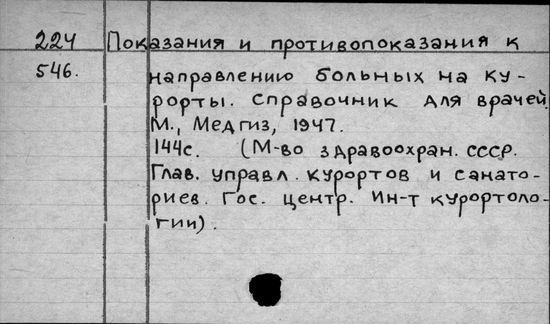 224 Показания и противопоказания к
546. направлению больных на ку-
рорты. Справочник для врачей.
М., Медгиз, 1947.
144с. (М-во здравоохран. СССР.
Глав. управл. курортов и санато-
риев. Гос. центр. Ин-т курортоло-
гии).